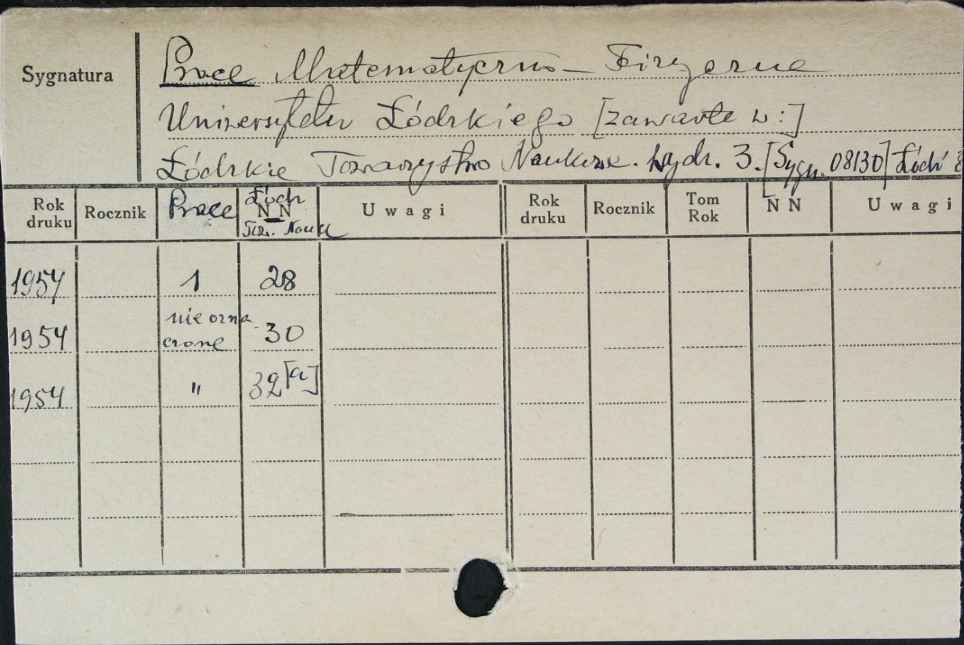 Sygnatura
Prace Matematyczno-Fizyczne
Uniwersytetu Łódzkiego [zawarte w:]
Łódzkie Towarzystwo Naukowe. Wydz. 3. [Sygn. 08130] Łódź
Rok druku Rocznik Prace Łódź. N N Tow. Nauk Uwagi Rok druku Rocznik Tom Rok N N Uwagi
1954 1 28
1954 nie ozna-czone 30
1954 " 32[a]